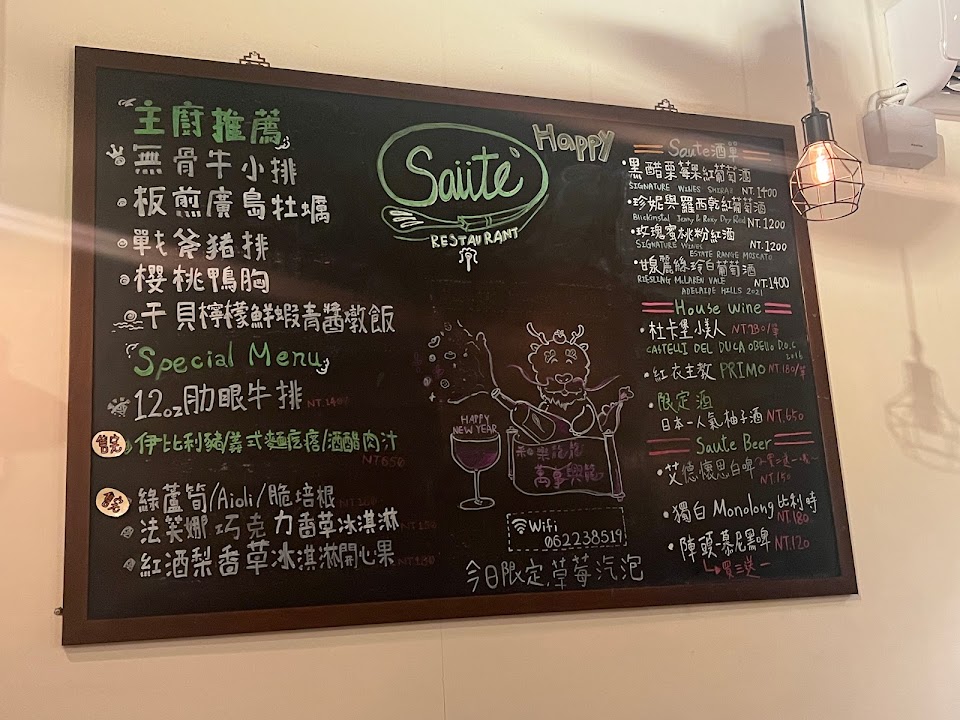 主廚推薦
無骨牛小排
板煎廣島牡蠣
戰斧豬排
櫻桃鴨胸
干貝檸檬鮮蝦青醬燉飯
Special Menu
12oz肋眼牛排 NT.1400
售完 伊比利豬/義式麵疙瘩/酒醋肉汁
NT 650
售完 綠蘆筍/Aioli/脆培根
法芙娜巧克力香草冰淇淋 NT 150
紅酒梨香草冰淇淋開心果 NT 180
Sauté
RESTAURANT
Happy
HAPPY
NEW YEAR
和樂龍龍
萬事興龍
Wifi
062238519
今日限定,草莓汽泡
Saute酒單
•黑醋栗莓果紅葡萄酒
SIGNATURE WINES SHIRAZ NT.1400
•珍妮與羅西乾紅葡萄酒
Jenny & Roxy Dry Red NT.1200
•玫瑰蜜桃粉紅酒
SIGNATURE WINES NT.1200
ESTATE RANGE MOSCATO
•甘泉麗絲玲白葡萄酒
RIESLING McLAREN VALE NT.1400
ADELAIDE HILLS 2021
House Wine
•杜卡堡小美人 NT230/杯
CASTELLI DEL DUCA OBello D.O.C
2016
•紅衣主教 PRIMO NT180/杯
•限定酒
日本-人氣柚子酒 NT.650
Saute Beer
•艾德懷恩白啤 買二送一喔~
NT.150
•獨白 Monolong 比利時
NT.180
•陣頭-慕尼黑啤 NT.120
買三送一